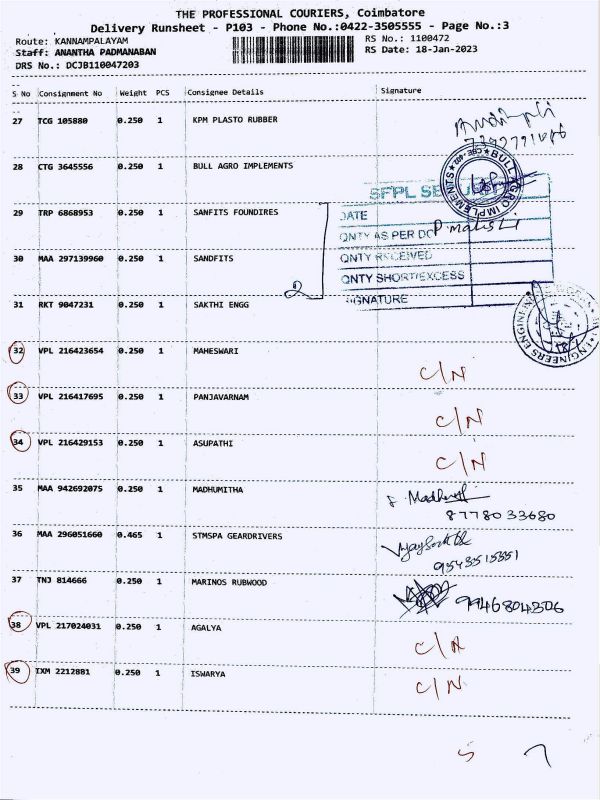 THE PROFESSIONAL COURIERS, Coimbatore
Delivery Runsheet - P103 - Phone No.:0422-3505555 - Page No.:3
Route: KANNAMPALAYAM
RS No.: 1100472
Staff: ANANTHA PADMANABAN
RS Date: 18-Jan-2023
DRS No.: DCJB110047203
S No Consignment No Weight PCS Consignee Details Signature
27 TCG 105880 0.250 1 KPM PLASTO RUBBER
28 CTG 3645556 0.250 1 BULL AGRO IMPLEMENTS
BULL AGRO IMPLEMENTS
SFPL
29 TRP 6868953 0.250 1 SANFITS FOUNDIRES
DATE
QNTY AS PER DC
30 MAA 297139960 0.250 1 SANDFITS
QNTY RECEIVED
QNTY SHORT/EXCESS
2
SIGNATURE
31 RKT 9047231 0.250 1 SAKTHI ENGG
ENGINEERS
32 VPL 216423654 0.250 1 MAHESWARI
C/N
33 VPL 216417695 0.250 1 PANJAVARNAM
C/N
34 VPL 216429153 0.250 1 ASUPATHI
C/N
35 MAA 942692075 0.250 1 MADHUMITHA
87780 33680
36 MAA 296051660 0.465 1 STMSPA GEARDRIVERS
37 TNJ 814666 0.250 1 MARINOS RUBWOOD
9946804306
38 VPL 217024031 0.250 1 AGALYA
C/N
39 IXM 2212881 0.250 1 ISWARYA
C/N
5 7